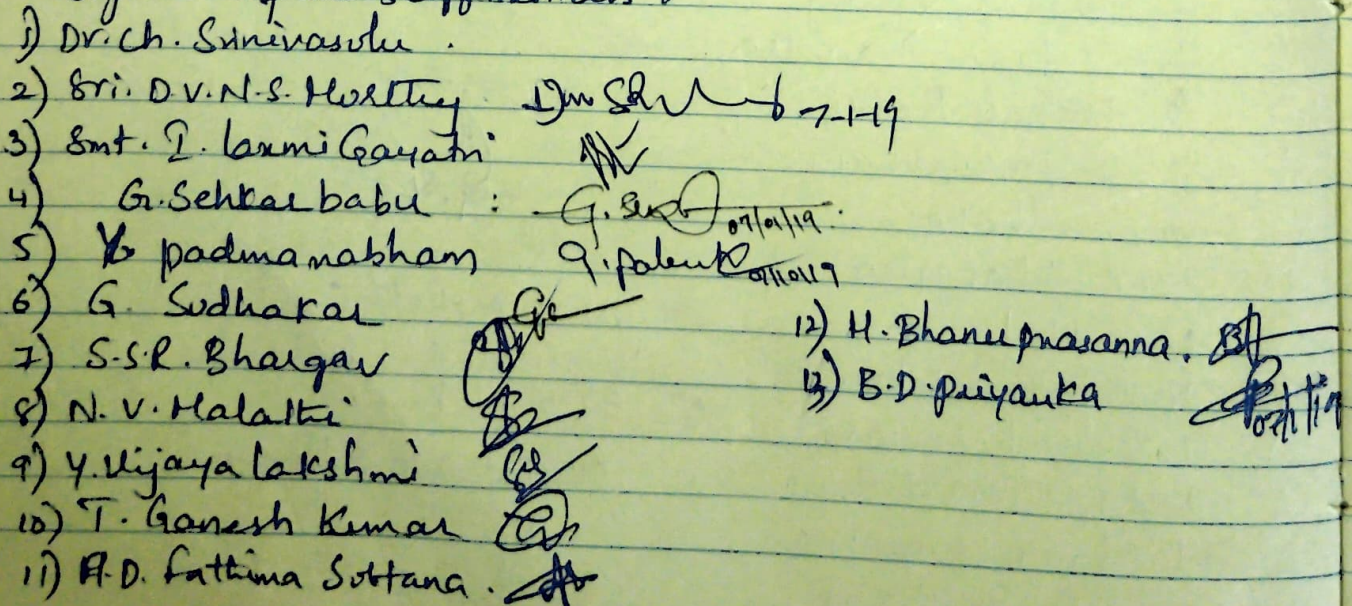 1) Dr. Ch. Srinivasulu .
2) Sri. D.V.N.S. Murthy 7-1-19
3) Smt. I. laxmi Gayatri
4) G. Sehkar babu : G. 07/01/19.
5) padmanabham
6) G. Sudhakar
7) S.S.R. Bhargav
8) N. V. Malathi
9) Y. Vijaya lakshmi
10) T. Ganesh Kumar
11) A.D. Fathima Sultana .
12) H. Bhanu prasanna .
13) B.D. priyanka